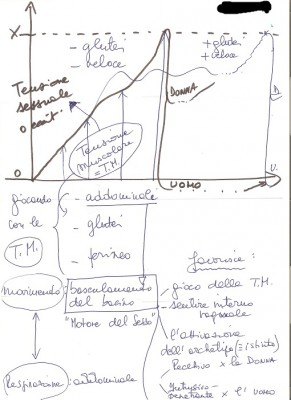 X
- glutei
- veloce
+ glutei
+ veloce
Tensione
sessuale
o eccit.
Tensione
muscolare
= T.M.
DONNA
D.
U.
O
UOMO
giocando
con le
T.M.
- addominale
- glutei
- perineo
Favorisce :
movimento :
basculamento
del bacino
"Motore del Sesso"
- gioco delle T.M.
- sentire interno
vaginale
- l'attivazione
dell'archetipo (= istinto)
Recettivo x la DONNA
Intrusivo-
penetrante x l' UOMO
Respirazione : addominale